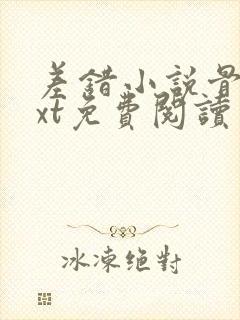 差錯小說骨
xt免費閱讀
冰凍绝對